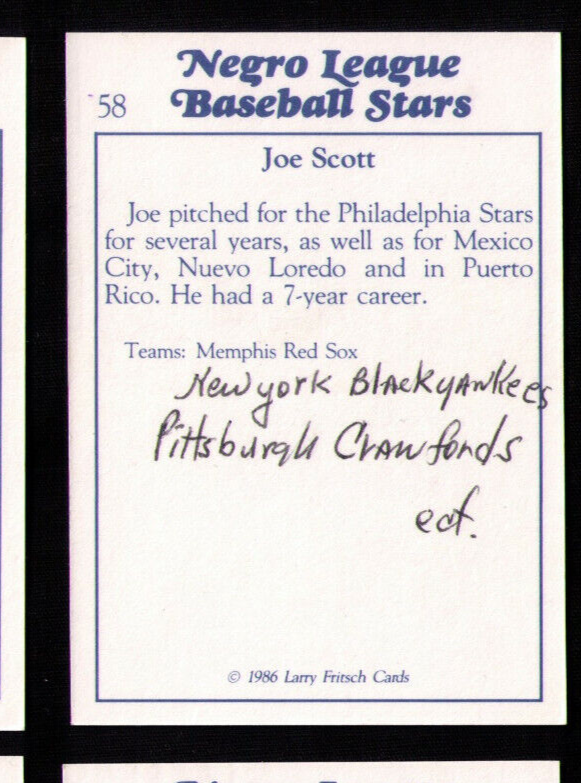 Negro League
58 Baseball Stars
Joe Scott
Joe pitched for the Philadelphia Stars
for several years, as well as for Mexico
City, Nuevo Loredo and in Puerto
Rico. He had a 7-year career.
Teams: Memphis Red Sox
New york Black yankees
Pittsburgh Crawfords
ect.
© 1986 Larry Fritsch Cards